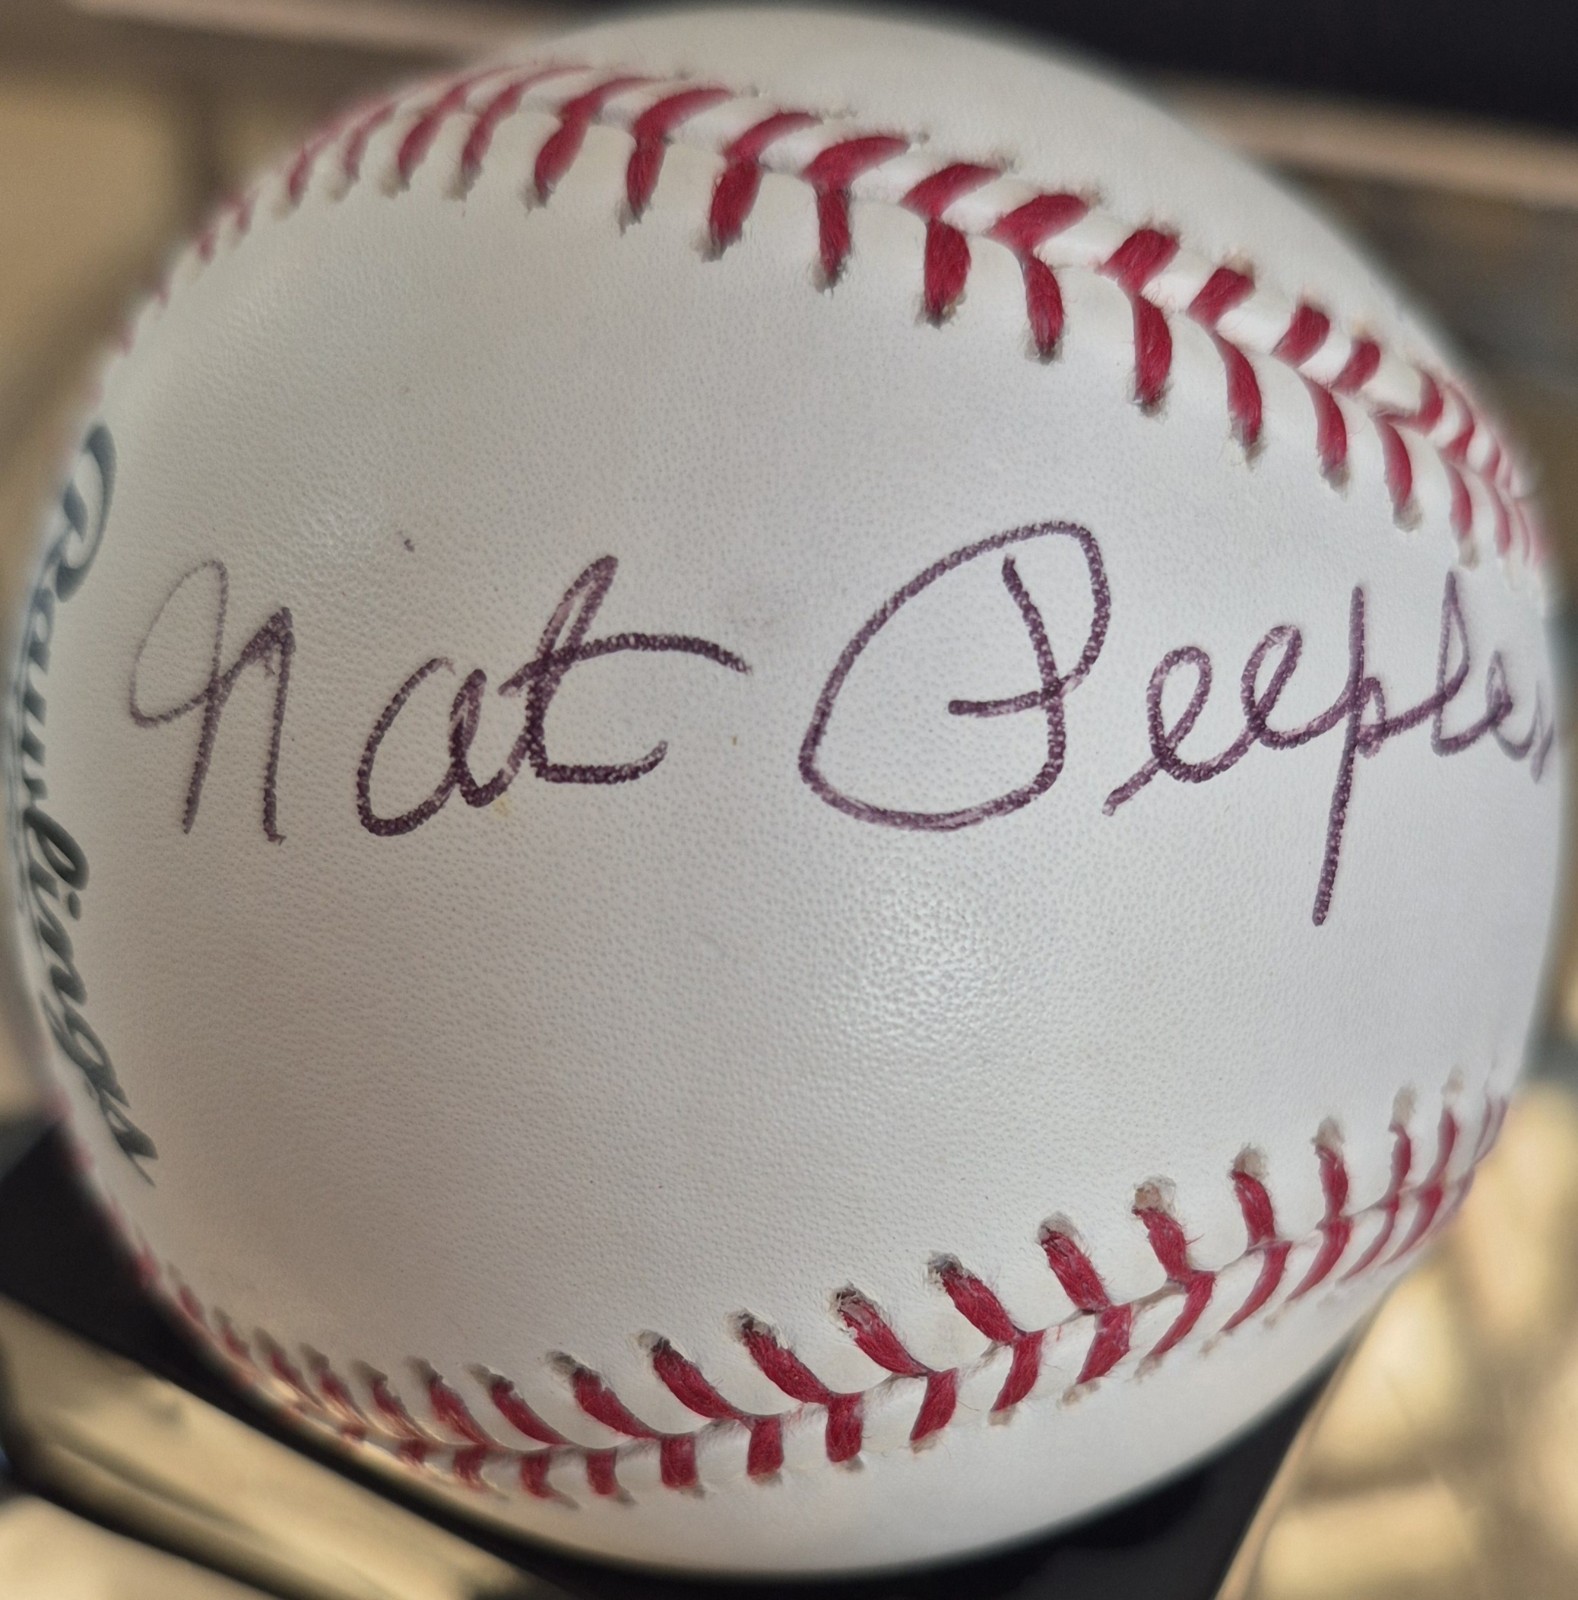 Rawlings
Nat Peeples